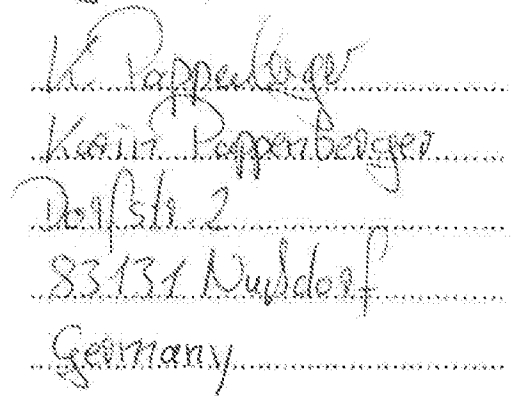 K. Pappenberger
Karin Pappenberger
Dorfstr. 2
83131 Nußdorf
Germany